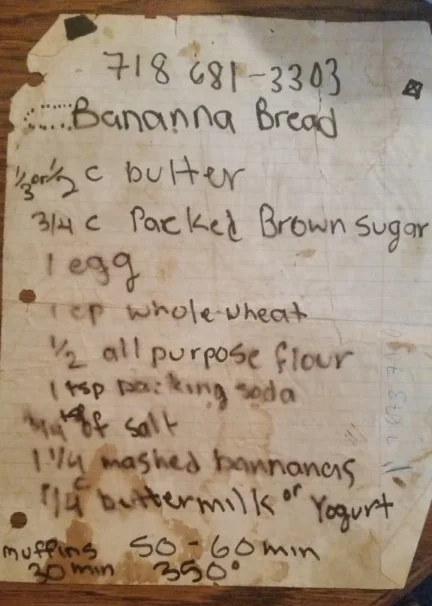 718 681-3303
Bananna Bread
1/3 or 1/2 c butter
3/4 c Packed Brown sugar
1 egg
1 cp whole wheat
1/2 all purpose flour
1 tsp backing soda
tsp of salt
1 1/4 mashed bannanas
1/4 c buttermilk or Yogurt
muffins 50-60 min
30 min 350°